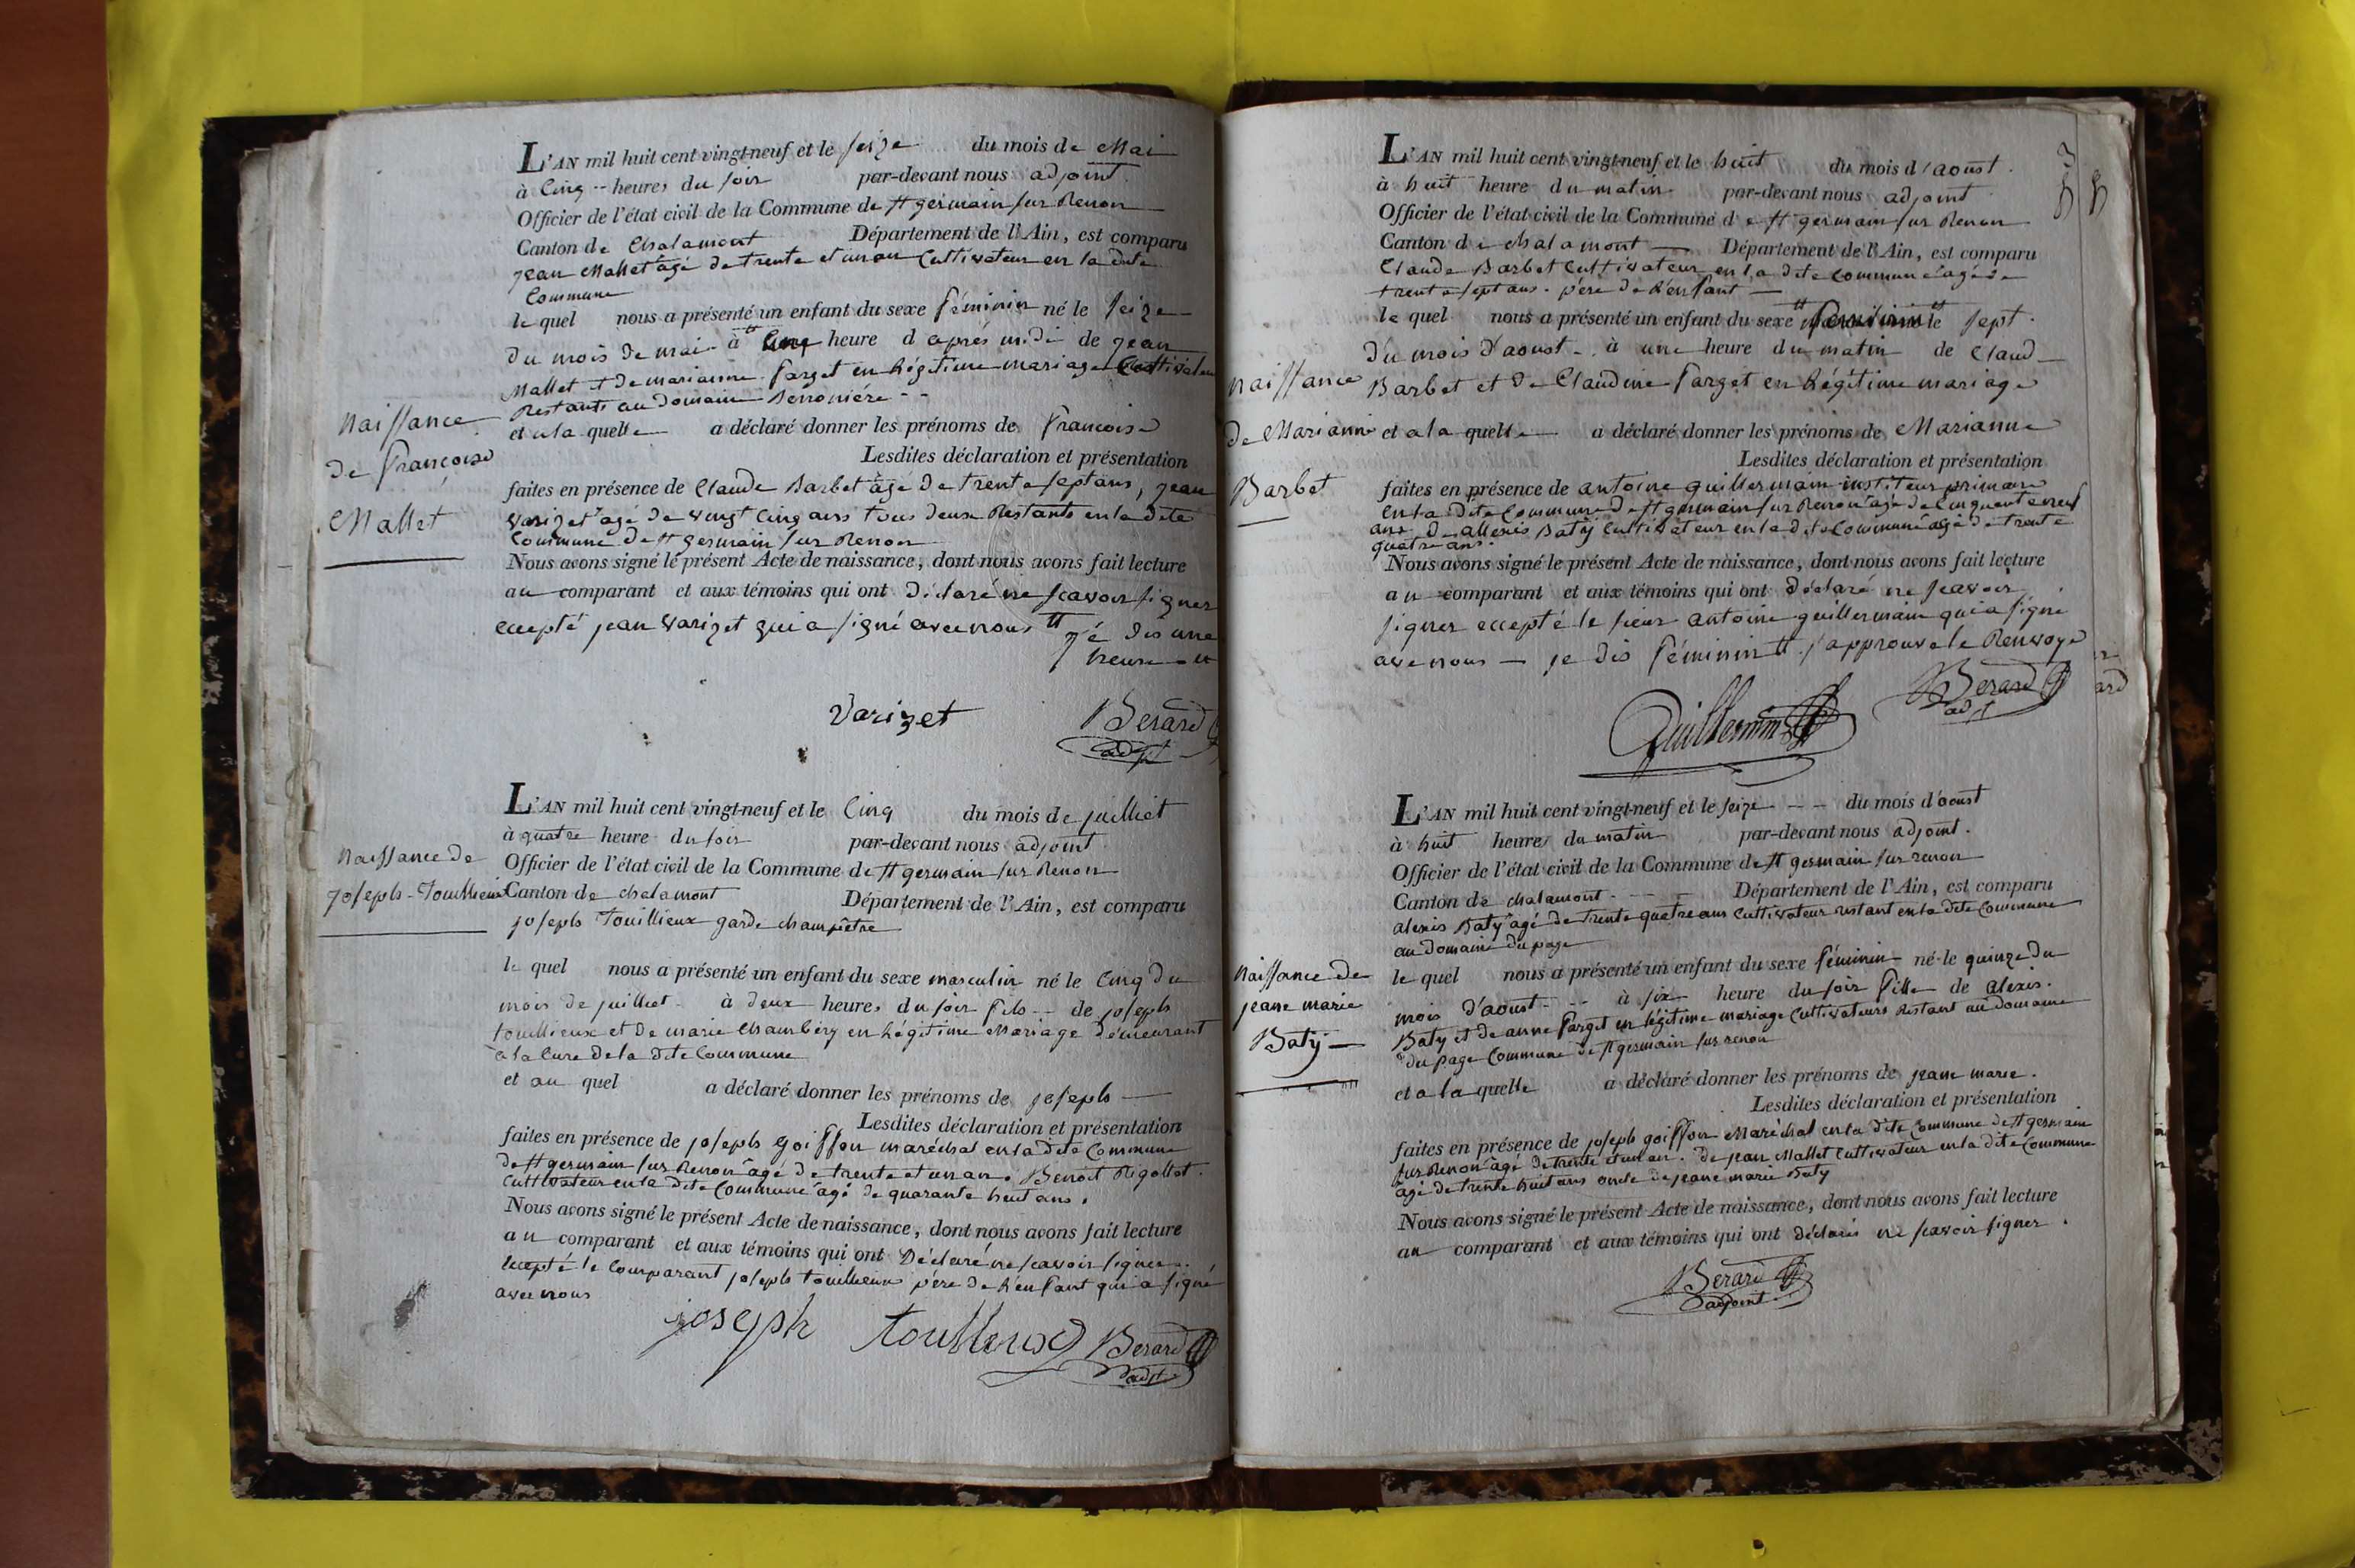 L'AN mil huit cent vingt-neuf et le seize du mois de Mai
à Cinq heures du soir par-devant nous adjoint
Officier de l'état civil de la Commune de St germain sur Renon
Canton de Chalamont Département de l'Ain, est comparu
jean Mallet âgé de trente et un an Cultivateur en la dite
Commune
le quel nous a présenté un enfant du sexe féminin né le seize
du mois de mai à heure d après midi de jean
Mallet et de marianne farget en légitime mariage Cultivateurs
Restants au domaine
Naissance
de françoise
Mallet
et a la quelle a déclaré donner les prénoms de francoise
Lesdites déclaration et présentation
faites en présence de Claude Barbet âgé de trente sept ans, jean
Varizet âgé de vingt cinq ans tous deux Restants en la dite
Commune de St germain sur Renon
Nous avons signé le présent Acte de naissance, dont nous avons fait lecture
au comparant et aux témoins qui ont déclaré ne scavoir signer
eccepté jean Varizet qui a signé avec nous je dis une
heure
Varizet Berard
adjt
L'AN mil huit cent vingt-neuf et le Cinq du mois de juilliet
à quatre heure du soir par-devant nous adjoint
Officier de l'état civil de la Commune de St germain sur Renon
Naissance de
joseph Touillieux
Canton de chalamont Département de l'Ain, est comparu
joseph Touillieux garde champêtre
le quel nous a présenté un enfant du sexe masculin né le Cinq du
mois de juilliet à deux heures du soir fils de joseph
touillieux et de marie Chambéry en légitime Mariage demeurant
à la Cure de la dite Commune
et au quel a déclaré donner les prénoms de joseph
Lesdites déclaration et présentation
faites en présence de joseph goiffon maréchal en la dite Commune
de St germain sur Renon âgé de trente et un an. Benoit Rigollet
Cultivateur en la dite Commune âgé de quarante huit ans.
Nous avons signé le présent Acte de naissance, dont nous avons fait lecture
au comparant et aux témoins qui ont Déclaré ne scavoir signer
eccepté le Comparant joseph touillieux père de l'enfant qui a signé
avec nous
joseph toullieux Berard
adjt
L'AN mil huit cent vingt-neuf et le huit du mois d'aoust
à huit heure du matin par-devant nous adjoint
Officier de l'état civil de la Commune de St germain sur Renon
Canton de chalamont Département de l'Ain, est comparu
Claude Barbet Cultivateur en la dite Commune âgé de
trente sept ans père de l'enfant
le quel nous a présenté un enfant du sexe féminin le sept
du mois d'aoust à une heure du matin de Claud
Naissance
de Marianne
Barbet
Barbet et de Claudine farget en légitime mariage
et a la quelle a déclaré donner les prénoms de Marianne
Lesdites déclaration et présentation
faites en présence de antoine guillermain instituteur primaire
en la dite Commune de St germain sur Renon âgé de Cinquante neuf
ans de allexis Baty Cultivateur en la dite Commune âgé de trente
quatre ans
Nous avons signé le présent Acte de naissance, dont nous avons fait lecture
au comparant et aux témoins qui ont déclaré ne scavoir
signer eccepté le sieur antoine guillermain qui a signé
avec nous je dis féminin j'approuve le Renvoye
Berard
adjt
L'AN mil huit cent vingt-neuf et le seize du mois d'aoust
à huit heures du matin par-devant nous adjoint.
Officier de l'état civil de la Commune de St germain sur renon
Canton de chalamont Département de l'Ain, est comparu
alexis Baty âgé de trente quatre ans Cultivateur restant en la dite Commune
au domaine du page
Naissance de
jeane marie
Baty
le quel nous a présenté un enfant du sexe féminin né le quinze du
mois d'aoust à six heure du soir fille de alexis
Baty et de anne farget en légitime mariage Cultivateurs Restant au domaine
du page Commune de St germain sur renon
et a la quelle a déclaré donner les prénoms de jeane marie.
Lesdites déclaration et présentation
faites en présence de joseph goiffon Maréchal en la dite Commune de St germain
sur Renon âgé de trente et un an. de jean Mallet Cultivateur en la dite Commune
âgé de trente huit ans oncle de jeane marie Baty
Nous avons signé le présent Acte de naissance, dont nous avons fait lecture
au comparant et aux témoins qui ont déclaré ne scavoir signer.
Berard
adjoint